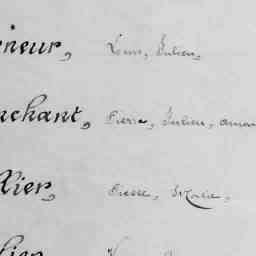 eneur, Louis, Julien,
nchant, Pierre, Julien, Aman
Xier, Pierre, Marie,
lier